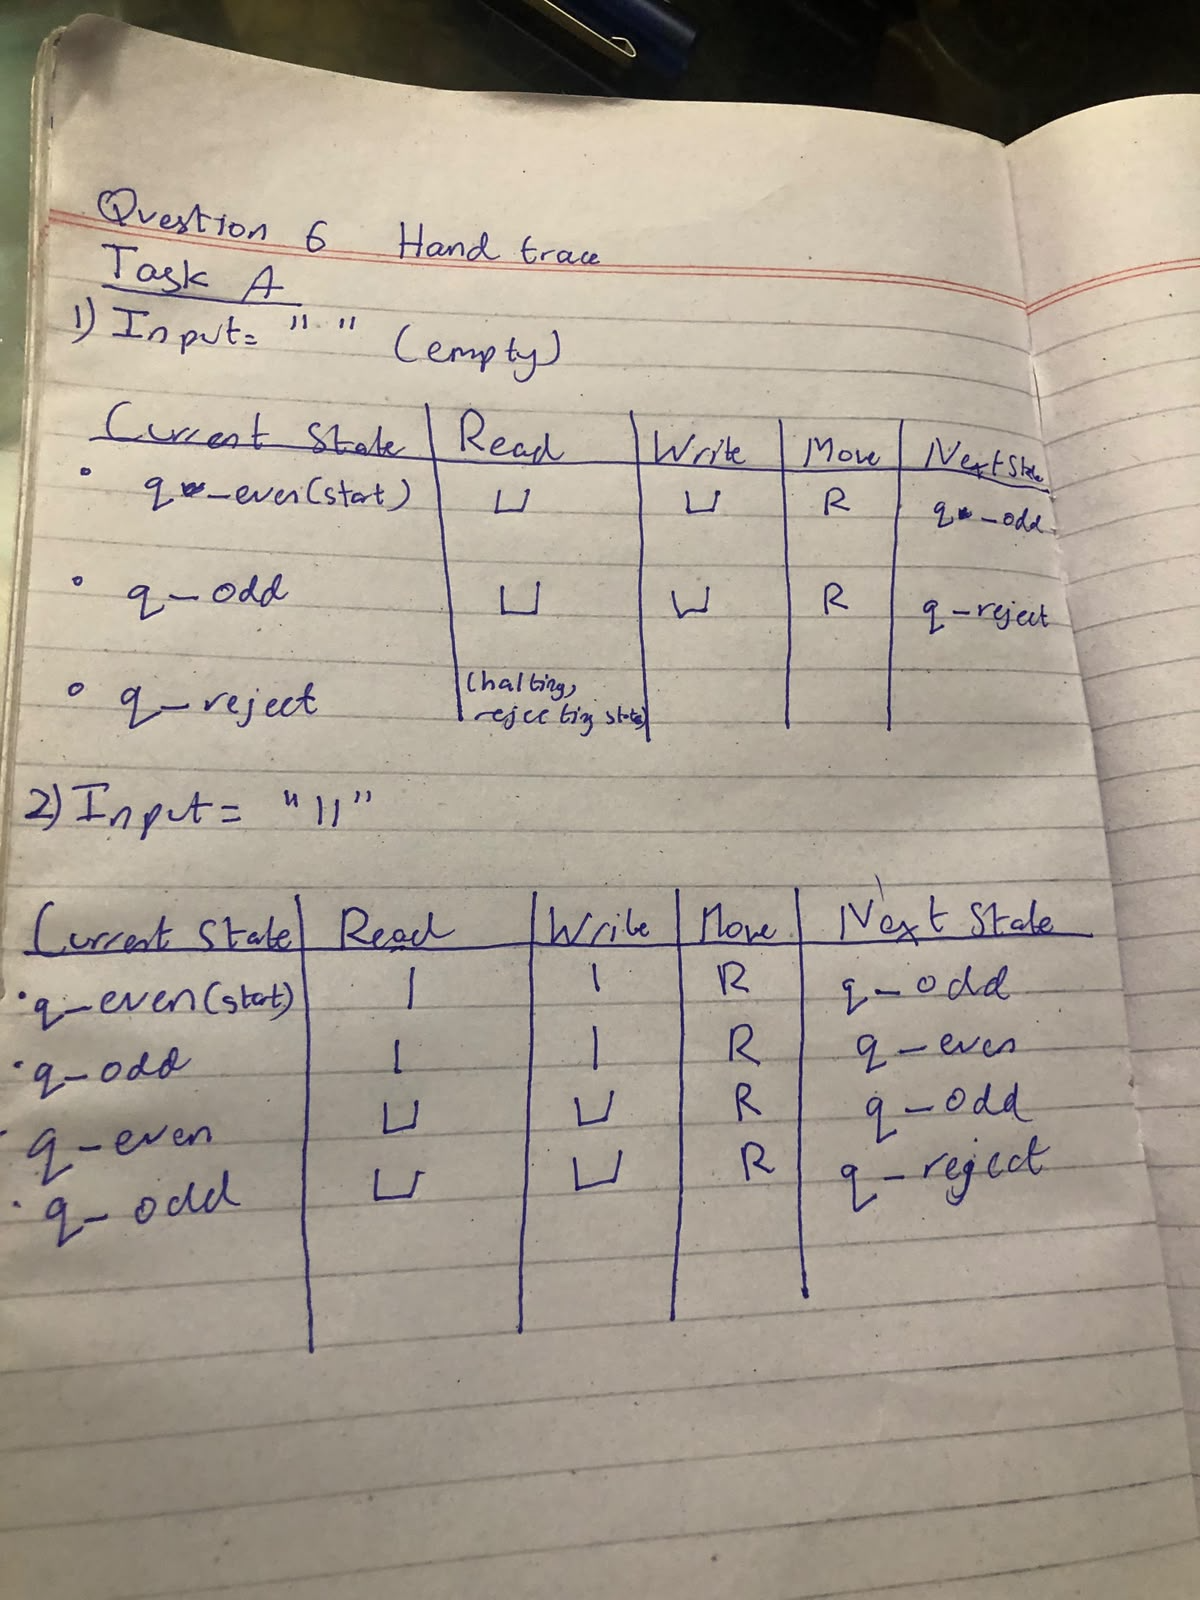 Question 6 Hand trace
Task A
1) Input= " " (empty)
Current State | Read | Write | Move | Next State
• q-even(start) | ⊔ | ⊔ | R | q-odd
• q-odd | ⊔ | ⊔ | R | q-reject
• q-reject | (halting, rejecting state)
2) Input= "11"
Current State | Read | Write | Move | Next State
• q-even(start) | 1 | 1 | R | q-odd
• q-odd | 1 | 1 | R | q-even
• q-even | ⊔ | ⊔ | R | q-odd
• q-odd | ⊔ | ⊔ | R | q-reject